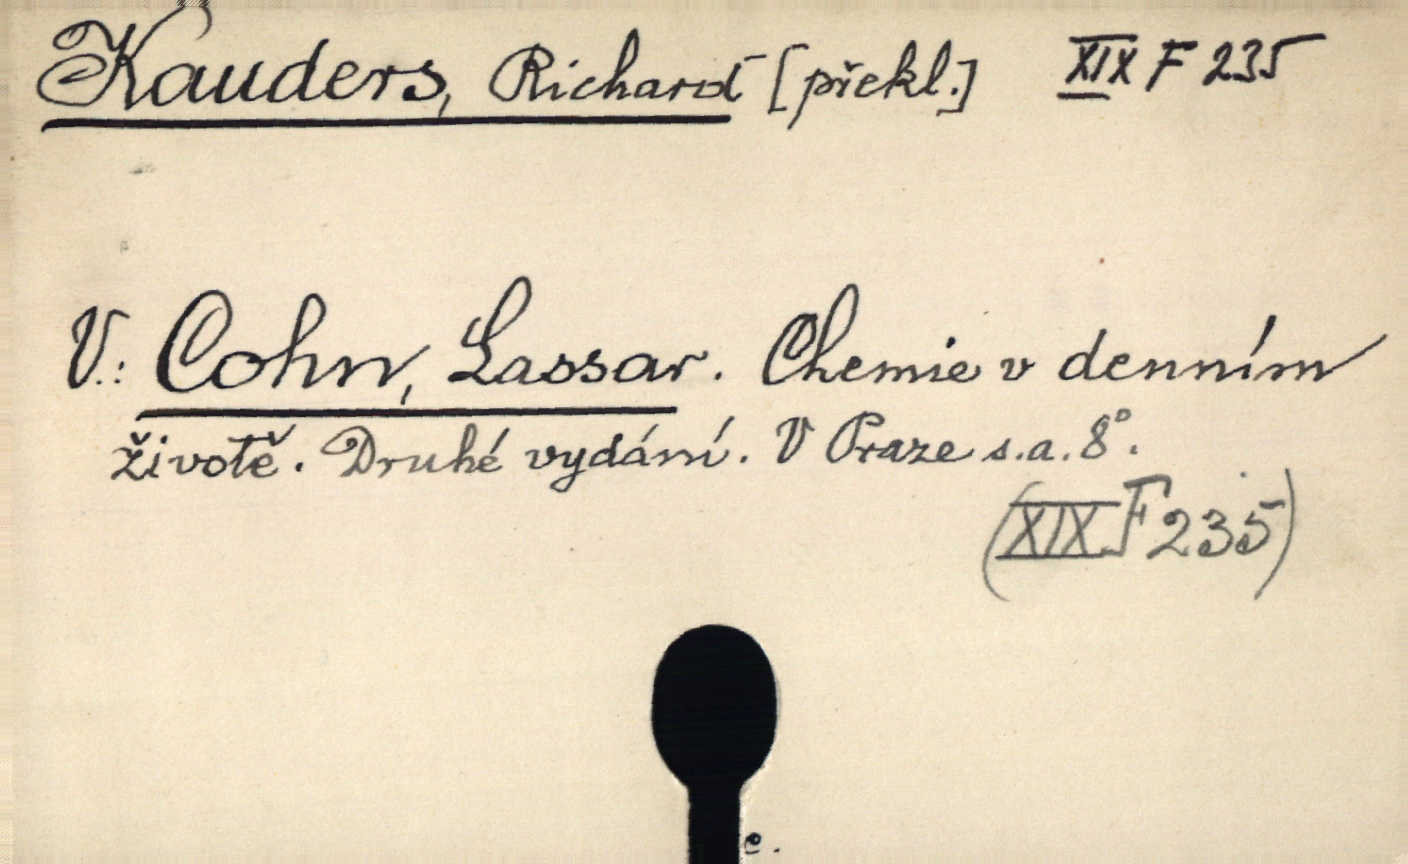 Kauders, Richard [překl.] XIX F 235
V.: Cohn, Lassar. Chemie v denním
životě. Druhé vydání. V Praze s.a. 8°.
(XIX F 235)